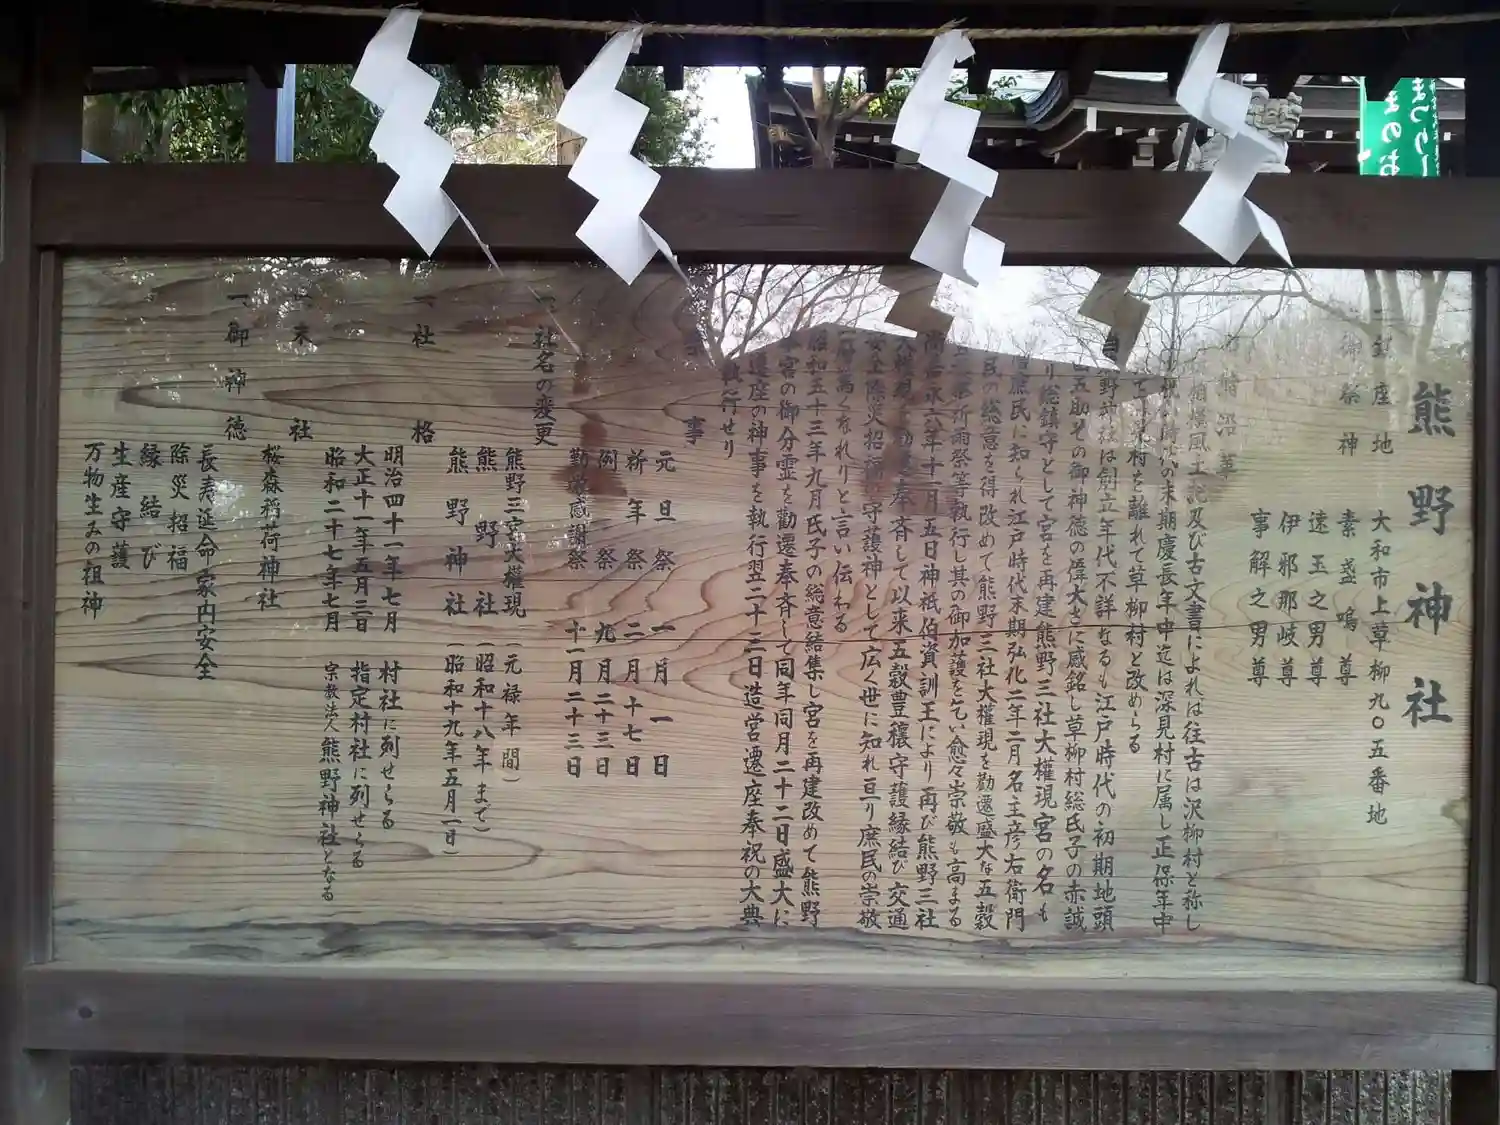 熊野神社
一 鎮座地 大和市上草柳九〇五番地
御祭神 素盞嗚尊
速玉之男尊
伊邪那岐尊
事解之男尊
沿革
相模風土記及び古文書によれば往古は沢柳村と称し
時代の末期慶長年中迄は深見村に属し正保年中
村を離れて草柳村と改めらる
熊野神社は創立年代不詳なるも江戸時代の初期地頭
五助その御神徳の偉大さに感銘し草柳村総氏子の赤誠
り総鎮守として宮を再建熊野三社大權現宮の名も
庶民に知られ江戸時代末期弘化二年二月名主彦右衛門
民の総意を得改めて熊野三社大權現を勸遷盛大な五穀
祈雨祭等執行し其の御加護を乞い愈々崇敬も高まる
永六年十一月五日神祇伯資訓王により再び熊野三社
奉斉して以来五穀豊穣守護縁結び交通
安全除災招福の守護神として広く世に知れ亘り庶民の崇敬
一層高くなれりと言い伝わる
昭和五十三年九月氏子の総意結集し宮を再建改めて熊野
宮の御分霊を勸遷奉斉して同年同月二十二日盛大に
遷座の神事を執行翌二十三日造営遷座奉祝の大典
執行せり
祭事
元旦祭 一月一日
祈年祭 二月十七日
例祭 九月二十三日
勤労感謝祭 十一月二十三日
一 社名の変更
熊野三宮大權現 (元禄年間)
熊野社 (昭和十八年まで)
熊野神社 (昭和十九年五月一日)
一 社格
明治四十一年七月 村社に列せらる
大正十一年五月三日 指定村社に列せらる
昭和二十七年七月 宗教法人熊野神社となる
一 末社
桜森稲荷神社
一 御神徳
長寿延命家内安全
除災招福
縁結び
生産守護
万物生みの祖神
まのお